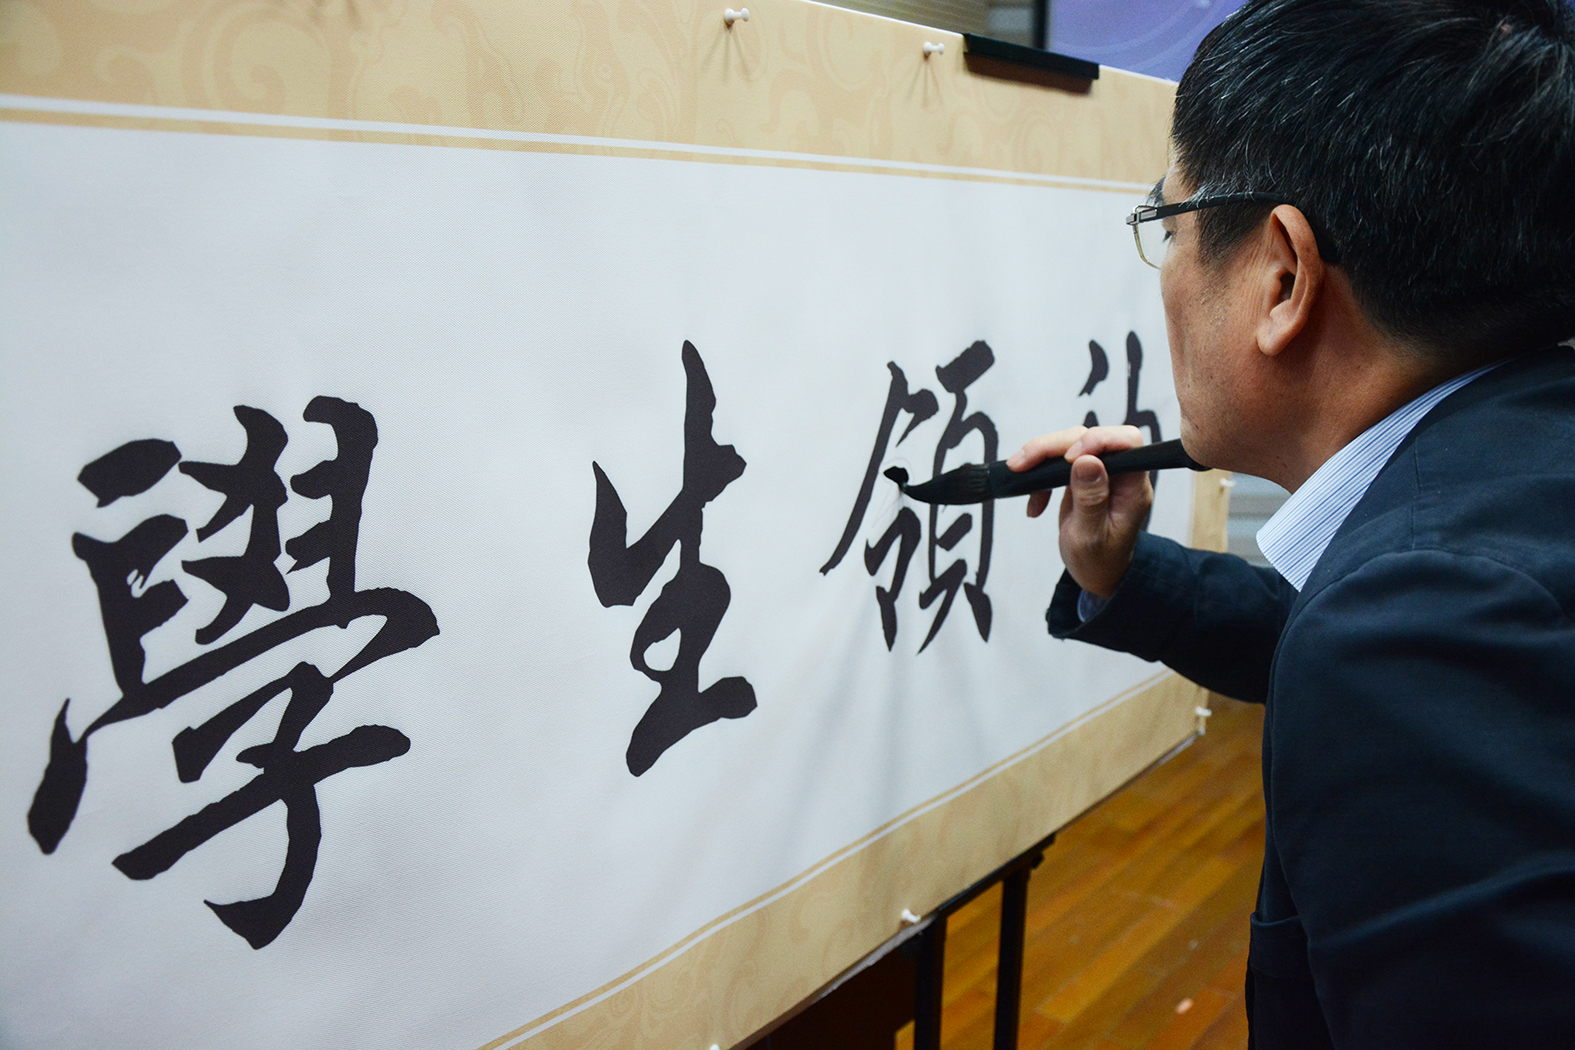 學生領